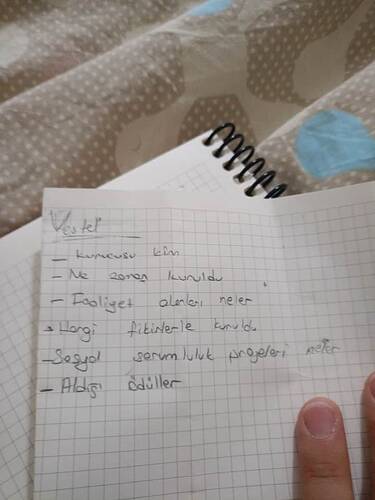 Vestel
- Kurucusu kim
- Ne zaman kuruldu
- Faaliyet alanları neler
* Hangi fikirlerle kuruldu
- Sosyal sorumluluk projeleri neler
- Aldığı ödüller